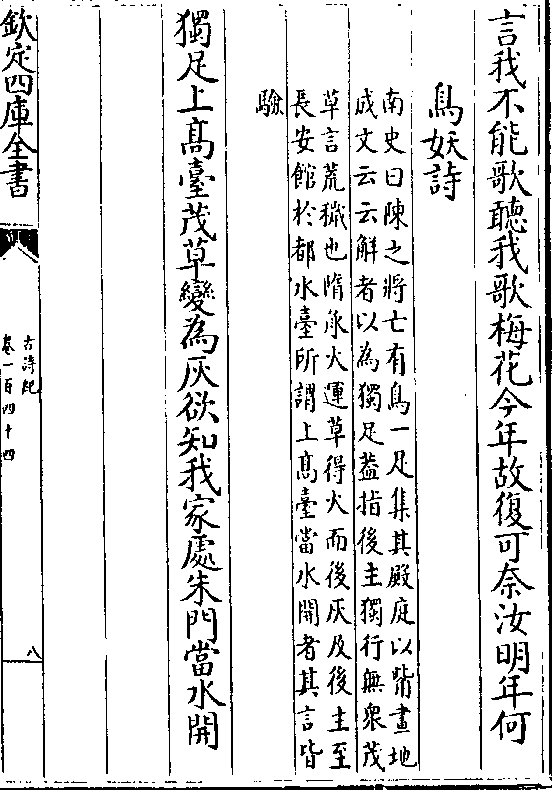 言我不能歌聽我歌梅花今年故復可奈汝明年何
鳥妖詩
南史曰陳之將亡有鳥一足集其殿庭以觜畫地
成文云云解者以為獨足葢指後主獨行無衆茂
草言荒穢也隋承火運草得火而後灰及後主至
長安館於都水臺所謂上髙臺當水開者其言皆
驗
獨足上髙臺茂草變為灰欲知我家處朱門當水開
欽定四庫全書
古詩紀
卷一百四十四
八